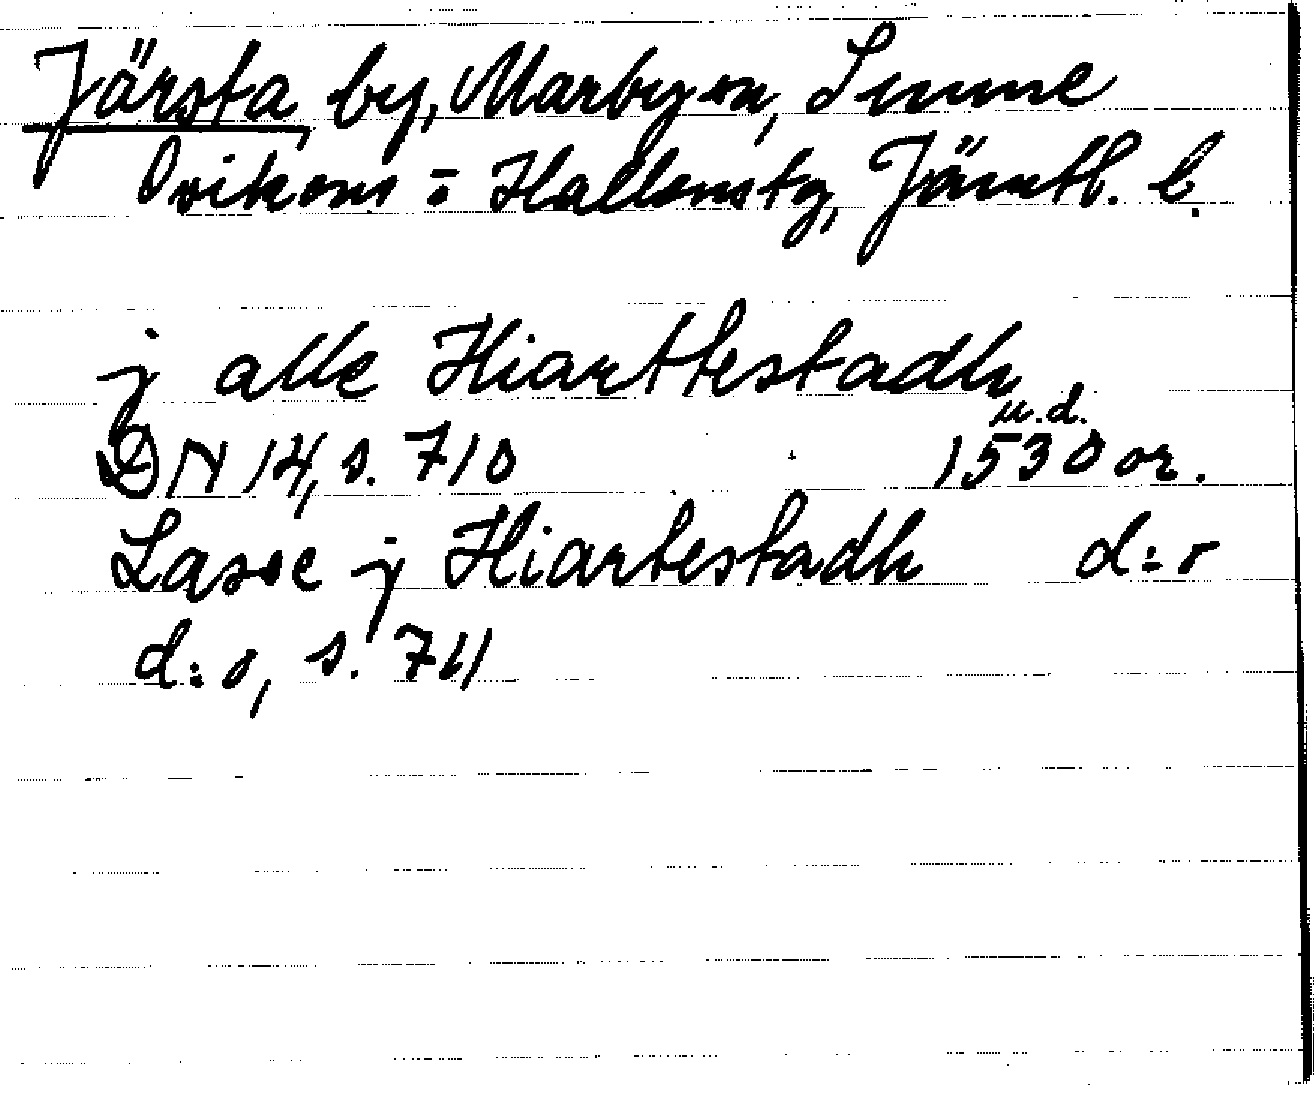 Järsta by, Marby sn, Sunne
Ovikens o Hallens tg, Jämtl. l.
j alle Hiarttestadh
u.d.
DN 14, s. 710 1530 or.
Lasse j Hiartestadh d:o
d:o, s. 711